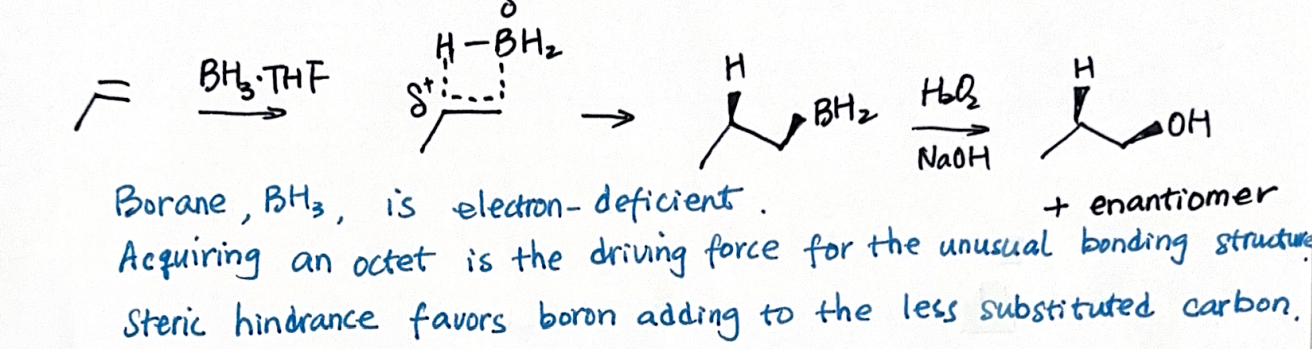 H–BH₂
BH₃·THF
δ⁺
H
BH₂
H₂O₂
NaOH
H
OH
+ enantiomer
Borane, BH₃, is electron-deficient.
Acquiring an octet is the driving force for the unusual bonding structure.
Steric hindrance favors boron adding to the less substituted carbon.